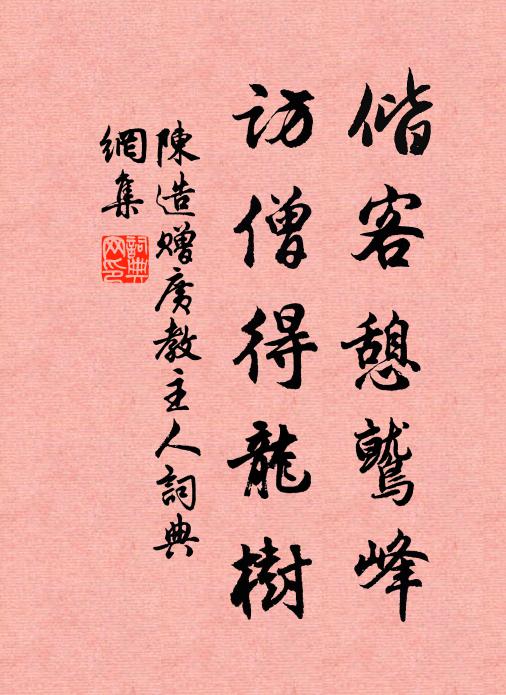 偕客憩鷲峰
訪僧得龍樹
陳造贈廣教主人詞典
網集
詞典
网印